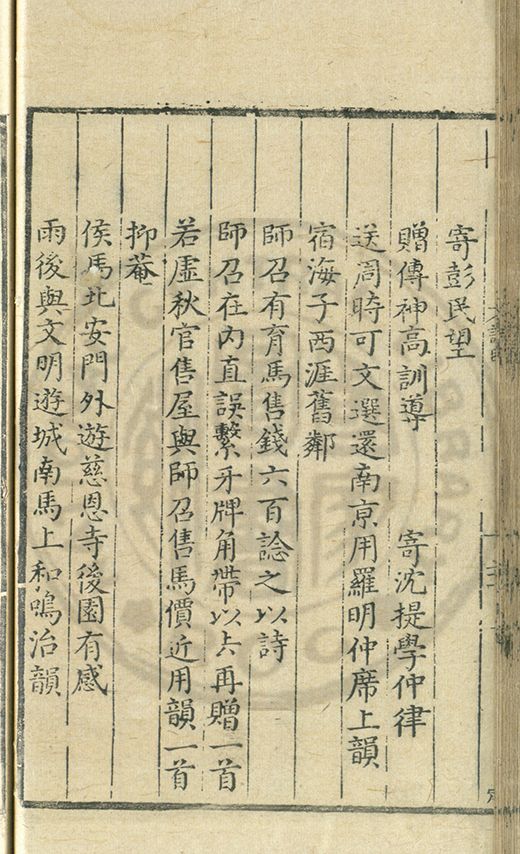 寄彭民望
贈傳神高訓導 寄沈提學仲律
送周時可文選還南京用羅明仲席上韻
宿海子西涯舊鄰
師召有育馬售錢六百諗之以詩
師召在內直誤繫牙牌角帶以六再贈一首
若虛秋官售屋與師召售馬價近用韻一首
抑菴
侯馬北安門外遊慈恩寺後園有感
雨後與文明遊城南馬上和鳴治韻